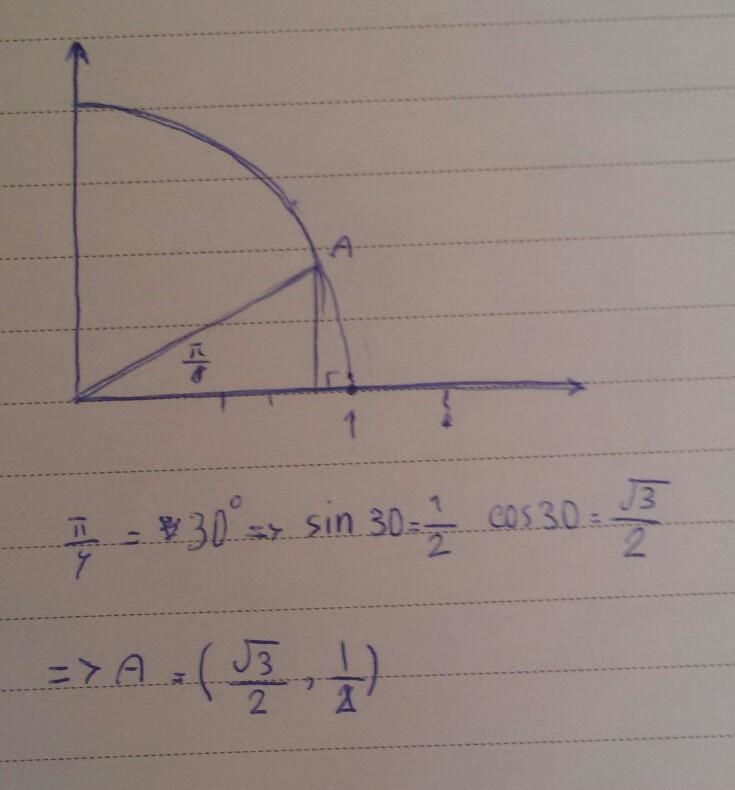 A
π
1
π/4 = 30° => sin 30 = 1/2 cos 30 = √3/2
=> A = (√3/2, 1/2)